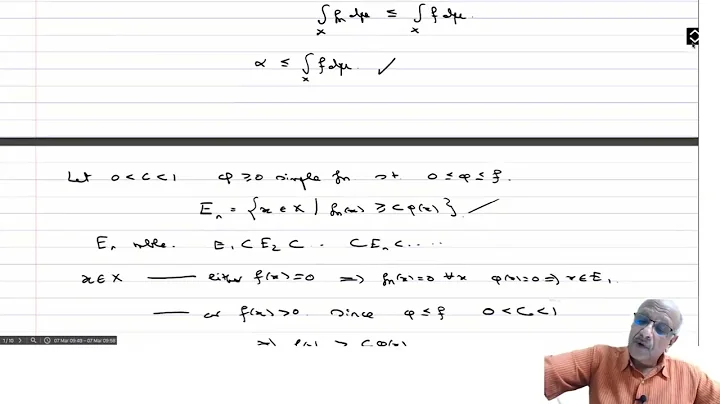 ∫_X fn dμ ≤ ∫_X f dμ.
α ≤ ∫_X f dμ. ✓
Let 0 < c < 1 φ ≥ 0 simple fn s.t. 0 ≤ φ ≤ f.
E_n = {x ∈ X | fn(x) ≥ cφ(x)}.
E_n mble. E_1 ⊂ E_2 ⊂ ... ⊂ E_n ⊂ ....
x ∈ X — either f(x)=0 ⟹ fn(x)=0 ∀x φ(x)=0 ⟹ x ∈ E_1.
— or f(x)>0. since φ ≤ f 0 < c < 1
⟹ f(x) > cφ(x)
1 / 10
07 Mar 05:49 - 07 Mar 05:58